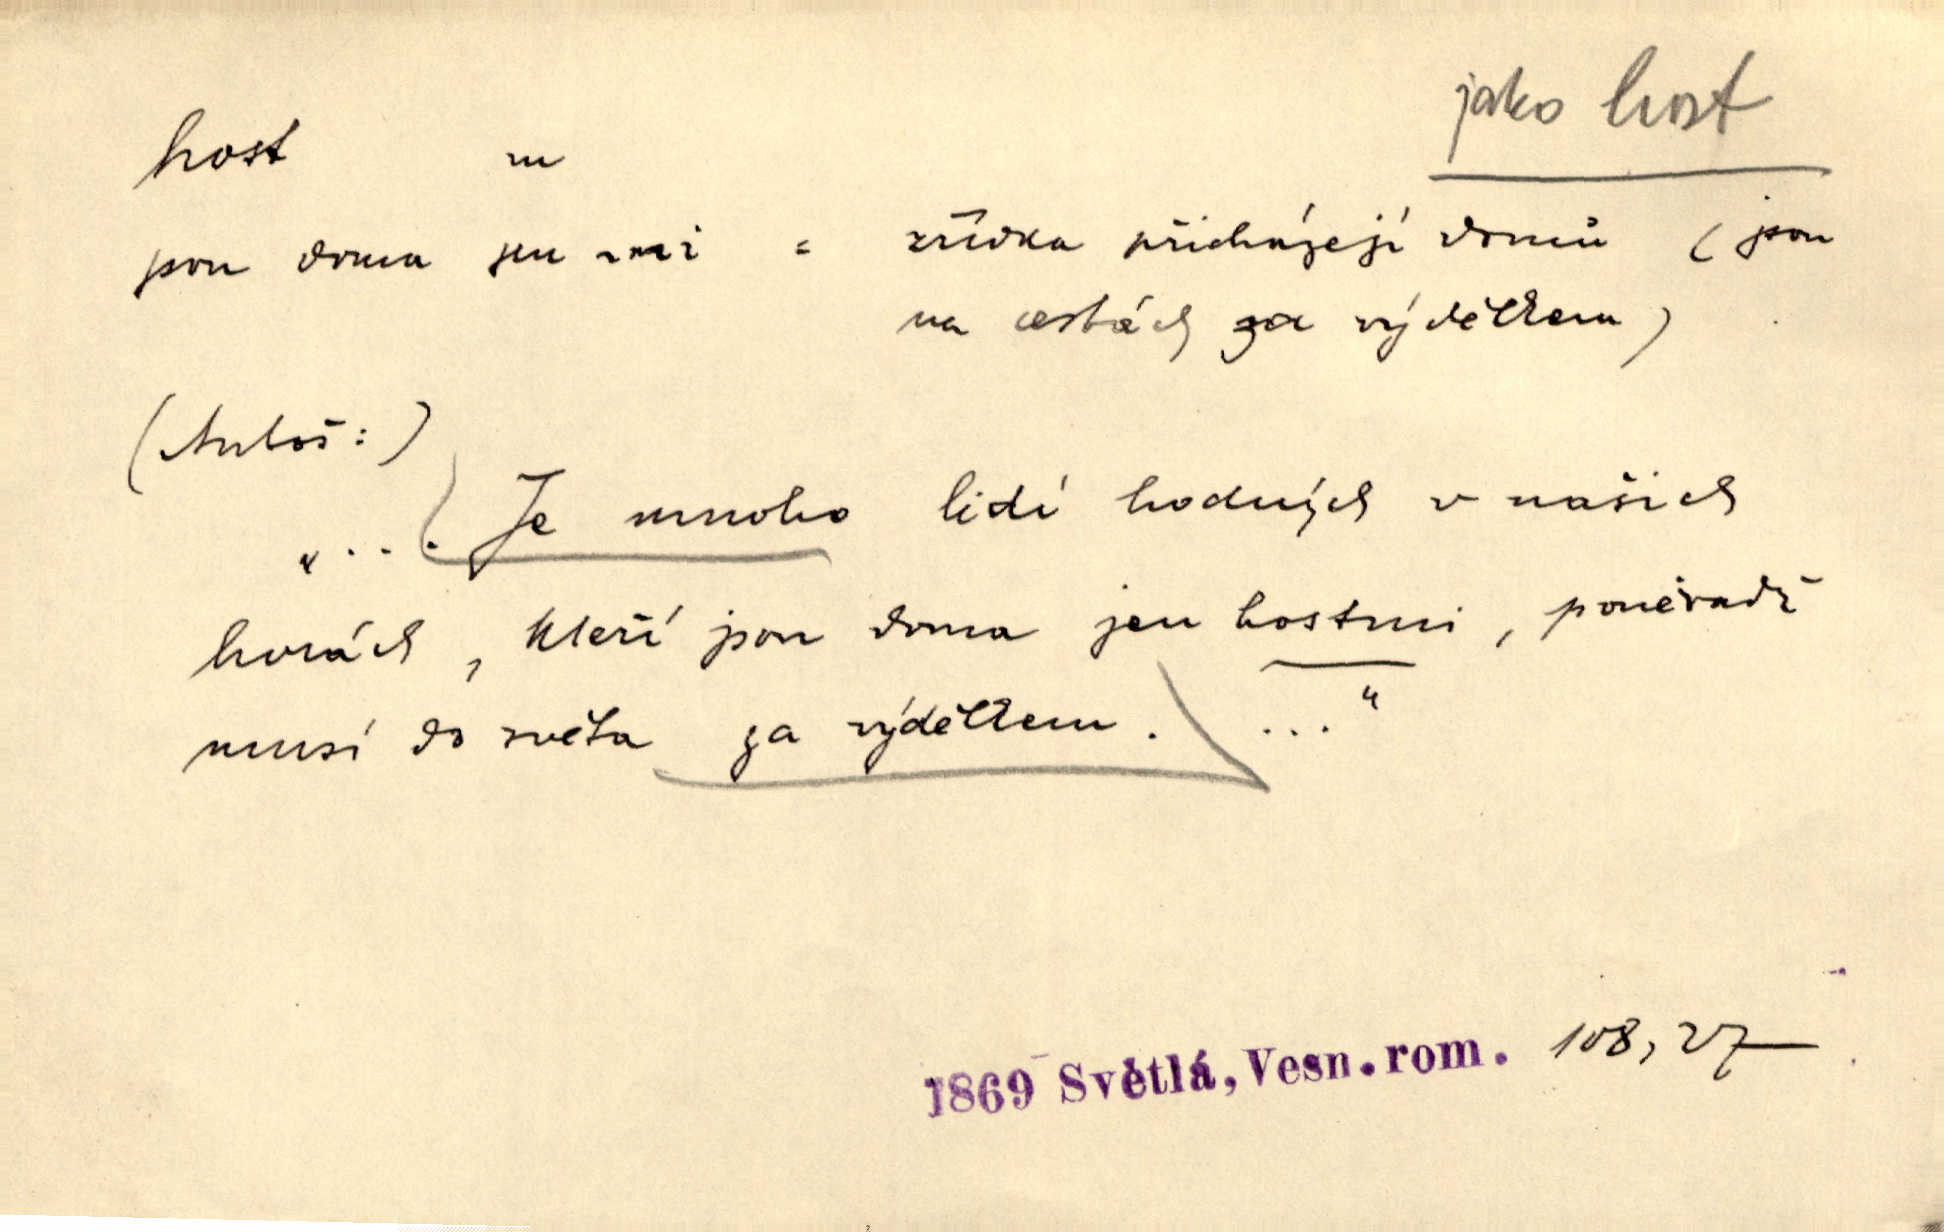 jako host
host m
jsou doma jen -mi = zřídka přicházejí domů (jsou
na cestách za výdělkem)
(Antoš:)
„... Je mnoho lidí hodných v našich
horách, kteří jsou doma jen hostmi, poněvadž
musí do světa za výdělkem. ..."
1869 Světlá, Vesn. rom. 108, 27